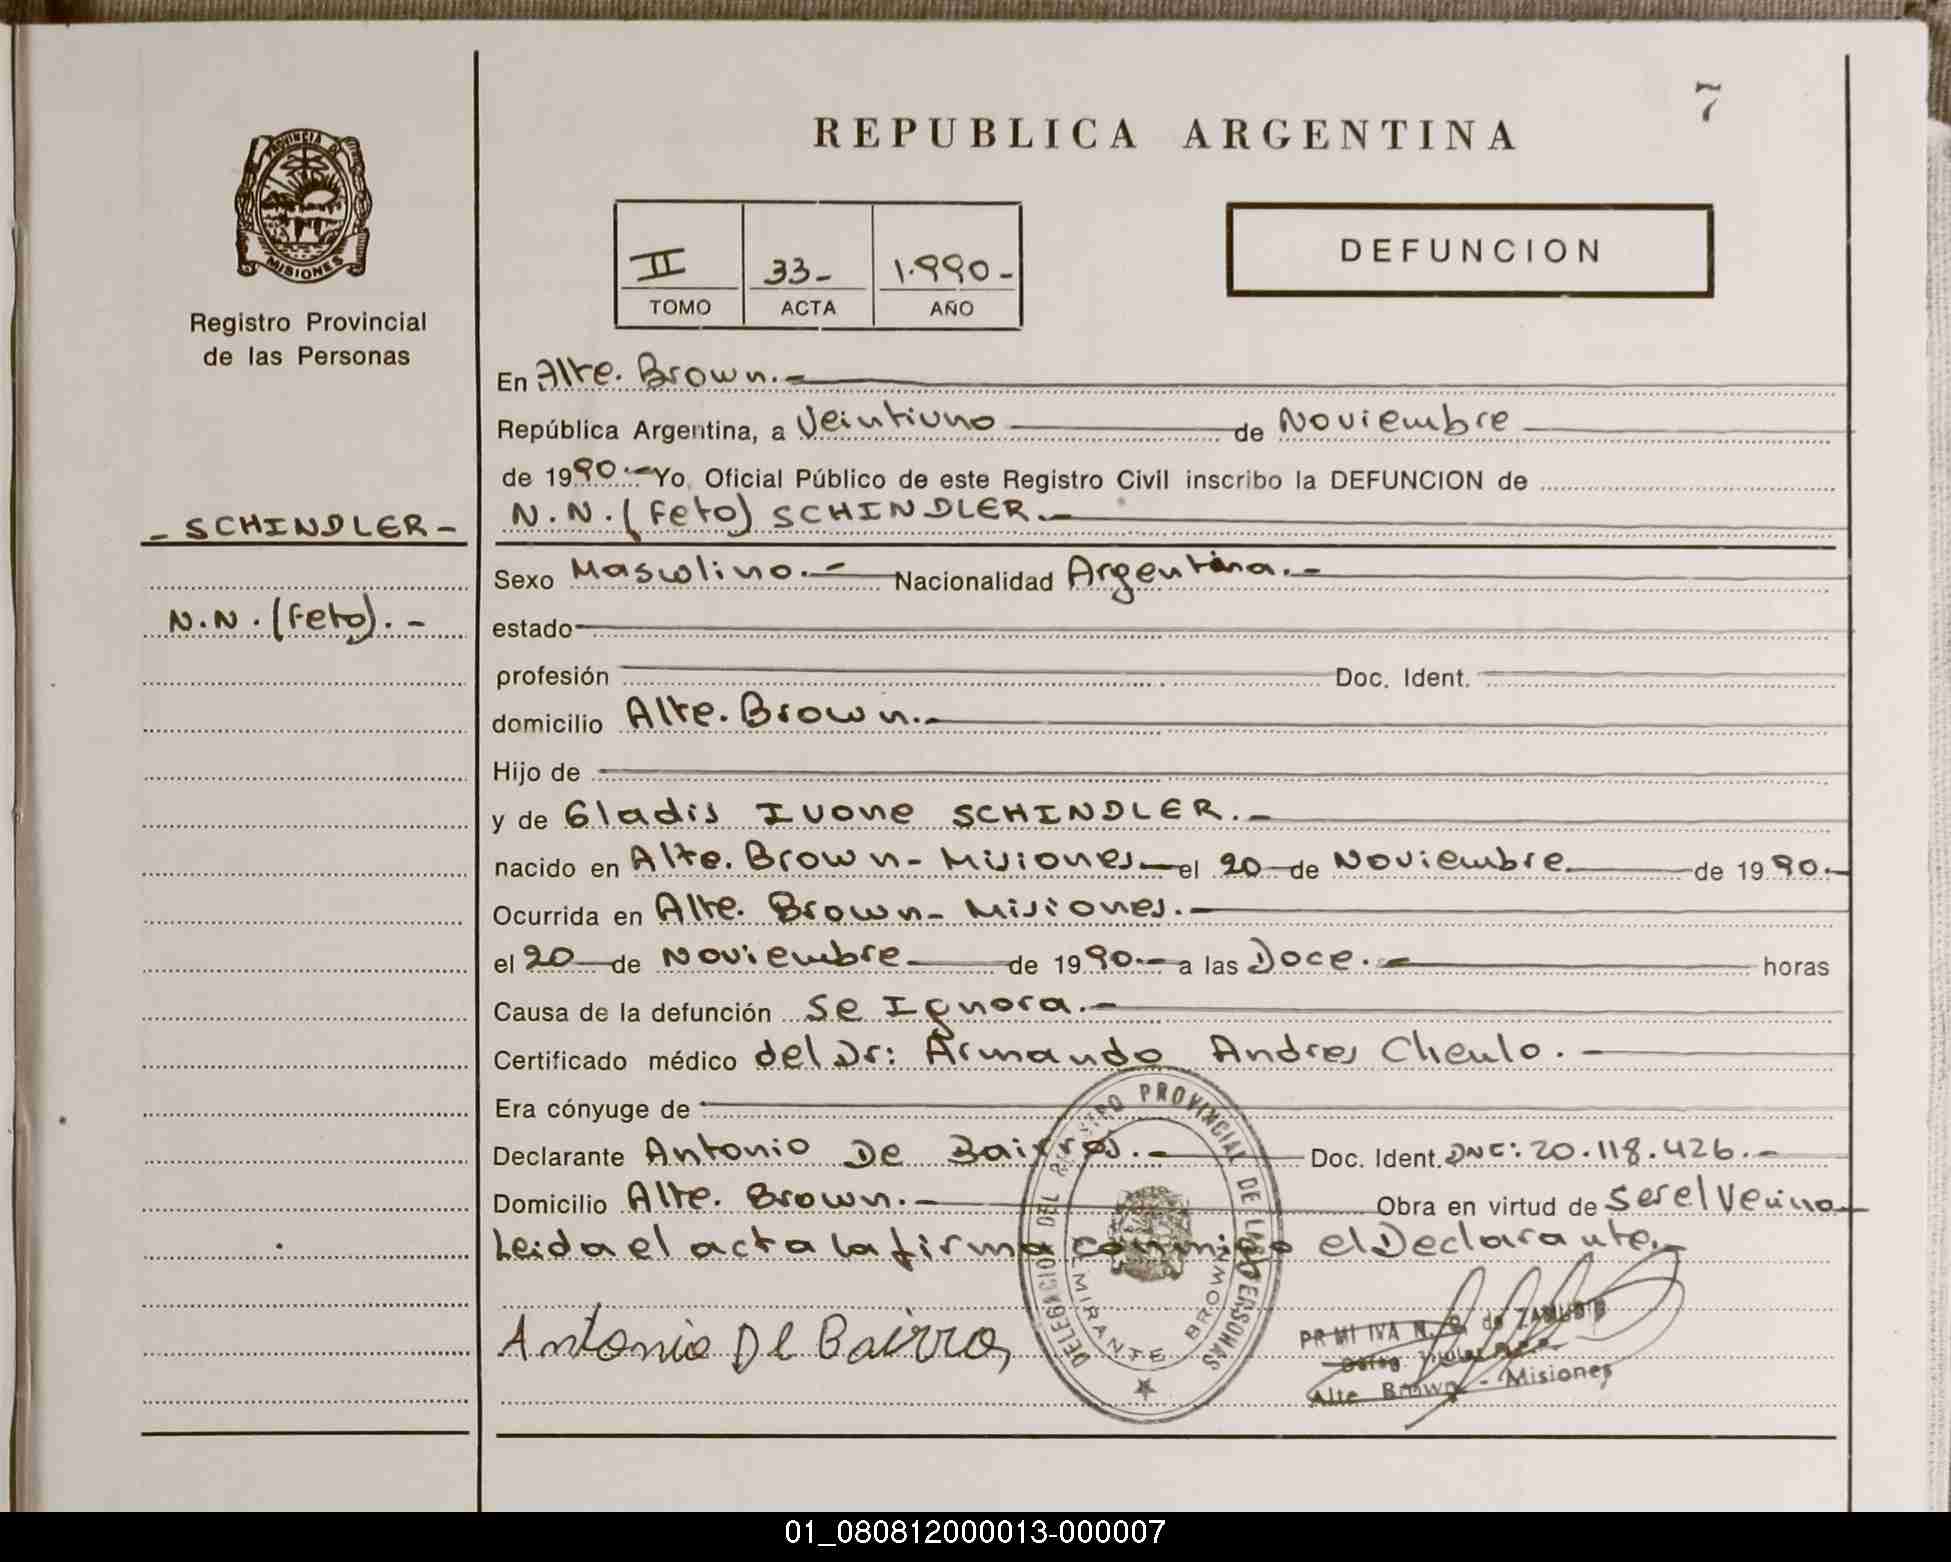 7
REPUBLICA ARGENTINA
PROVINCIA DE
MISIONES
Registro Provincial
de las Personas
II 33- 1.990-
TOMO ACTA AÑO
DEFUNCION
En Alte. Brown.-
República Argentina, a Veintiuno de Noviembre
de 1990.- Yo, Oficial Público de este Registro Civil inscribo la DEFUNCION de
- SCHINDLER -
N.N. (Feto) SCHINDLER.-
Sexo Masculino.- Nacionalidad Argentina.-
N.N. (Feto). -
estado
profesión Doc. Ident.
domicilio Alte. Brown.-
Hijo de
y de Gladis Ivone SCHINDLER.-
nacido en Alte. Brown - Misiones el 20 de Noviembre de 1990.-
Ocurrida en Alte. Brown - Misiones.-
el 20 de Noviembre de 1990.- a las Doce.- horas
Causa de la defunción Se Ignora.-
Certificado médico del Dr: Armando Andres Cheulo. -
Era cónyuge de
Declarante Antonio De Bairros.- Doc. Ident. DNI: 20.118.426.-
Domicilio Alte. Brown.- Obra en virtud de ser el Vecino
Leida el acta la firma conmigo el Declarante.-
Antonio De Bairros
DELEGACION DEL REGISTRO PROVINCIAL DE LAS PERSONAS
ALMIRANTE BROWN
PRIMITIVA N. de ZAMUDIO
Deleg. Titular
Alte. Brown - Misiones
01_080812000013-000007